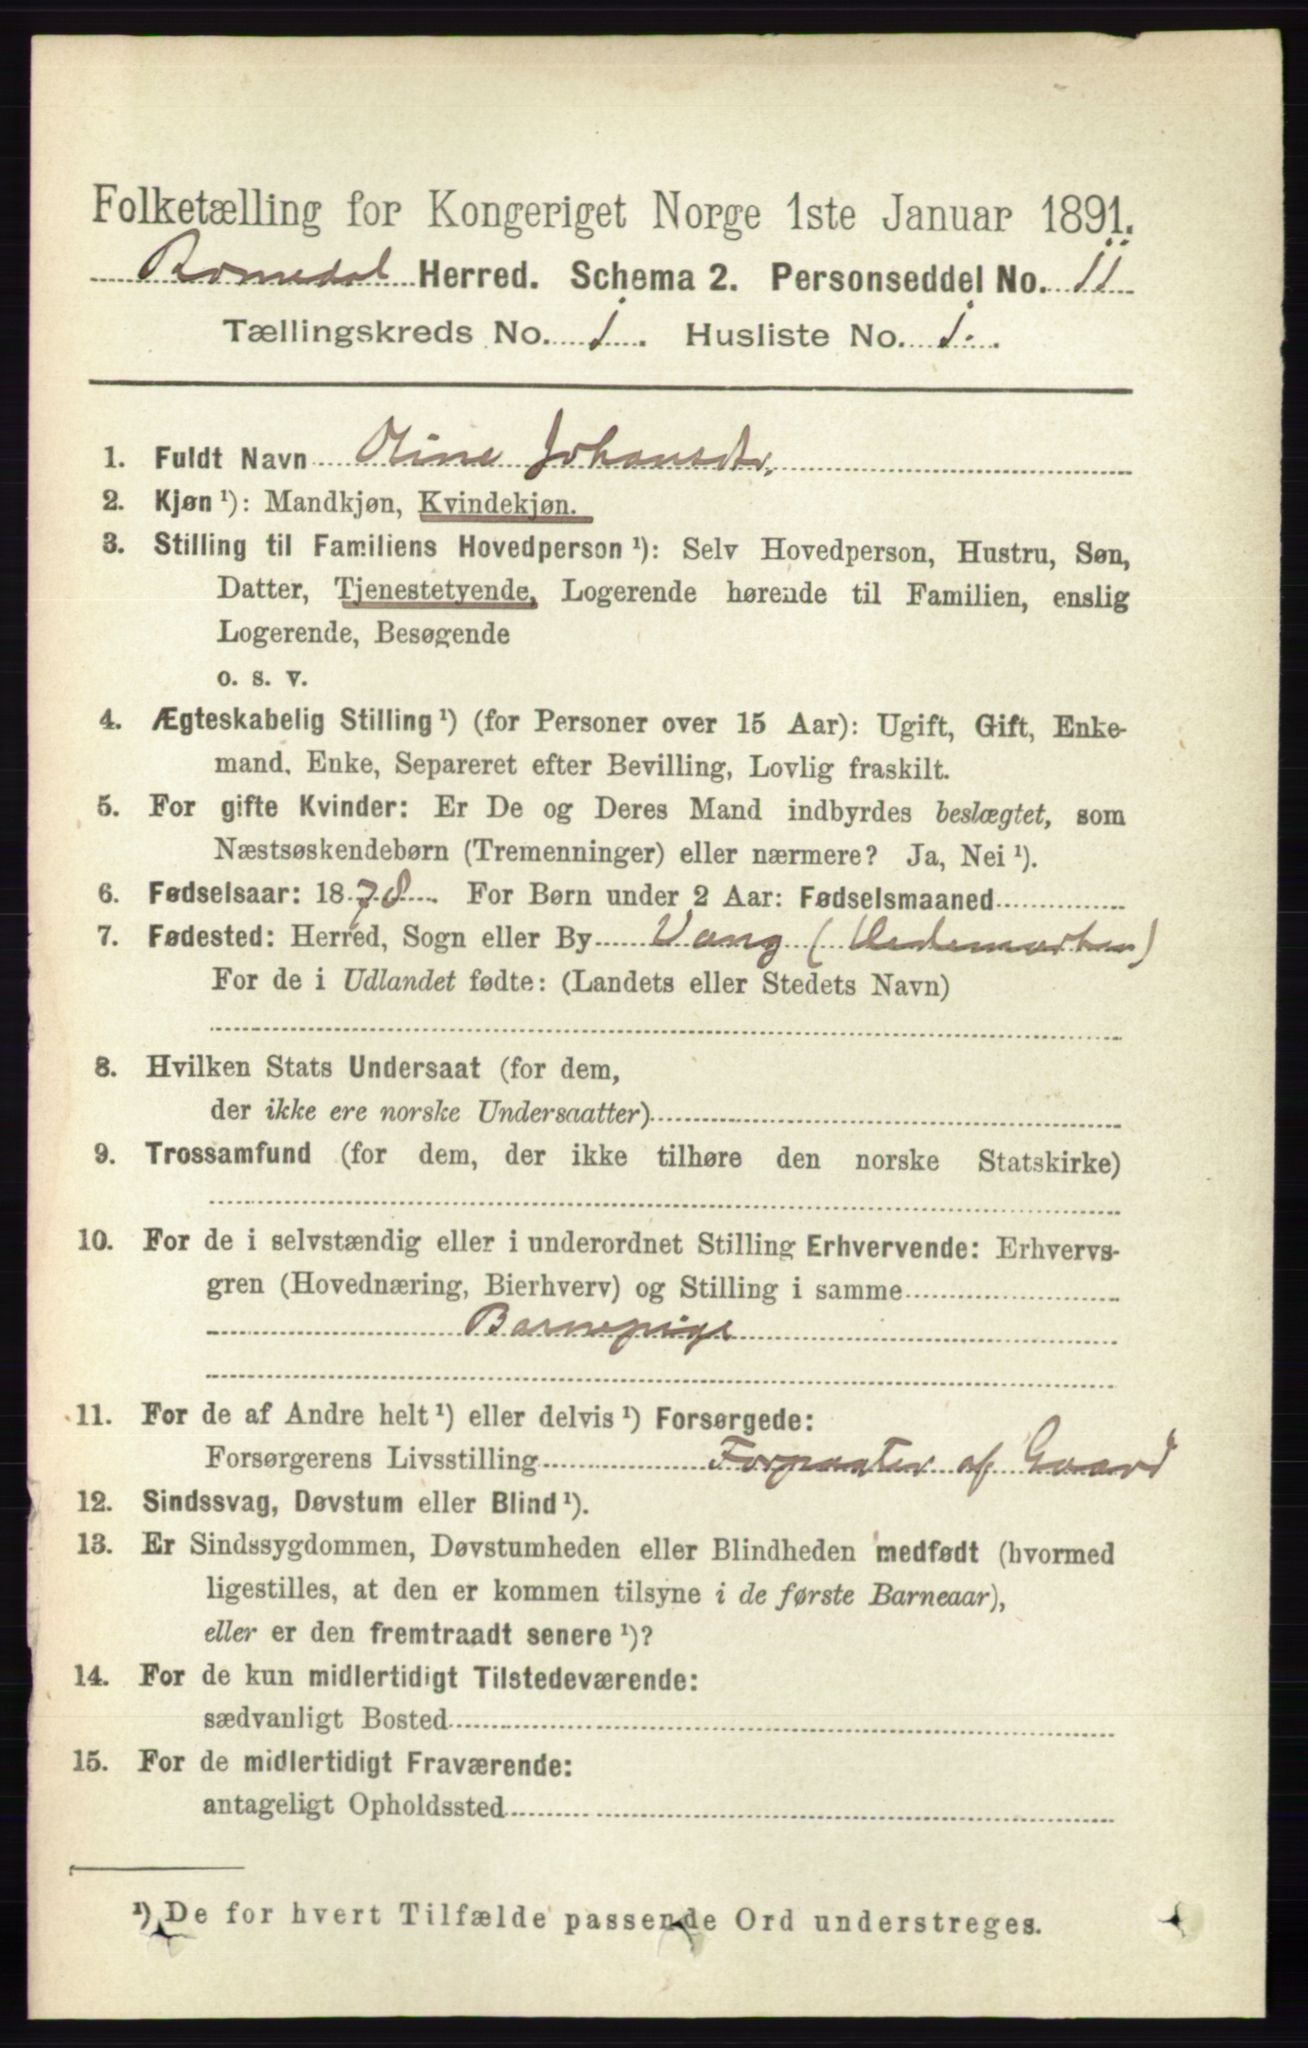 Folketælling for Kongeriget Norge 1ste Januar 1891.
Romedal Herred. Schema 2. Personseddel No. 11
Tællingskreds No. 1. Husliste No. 1.
1. Fuldt Navn Oline Johansdtr.
2. Kjøn¹): Mandkjøn, Kvindekjøn.
3. Stilling til Familiens Hovedperson¹): Selv Hovedperson, Hustru, Søn,
Datter, Tjenestetyende, Logerende hørende til Familien, enslig
Logerende, Besøgende
o. s. v.
4. Ægteskabelig Stilling¹) (for Personer over 15 Aar): Ugift, Gift, Enke-
mand, Enke, Separeret efter Bevilling, Lovlig fraskilt.
5. For gifte Kvinder: Er De og Deres Mand indbyrdes beslægtet, som
Næstsøskendebørn (Tremenninger) eller nærmere? Ja, Nei¹).
6. Fødselsaar: 1878. For Børn under 2 Aar: Fødselsmaaned
7. Fødested: Herred, Sogn eller By Vang (Hedemarken)
For de i Udlandet fødte: (Landets eller Stedets Navn)
8. Hvilken Stats Undersaat (for dem,
der ikke ere norske Undersaatter)
9. Trossamfund (for dem, der ikke tilhøre den norske Statskirke)
10. For de i selvstændig eller i underordnet Stilling Erhvervende: Erhvervs-
gren (Hovednæring, Bierhverv) og Stilling i samme
Barnepige
11. For de af Andre helt¹) eller delvis¹) Forsørgede:
Forsørgerens Livsstilling Forpagter af Gaard
12. Sindssvag, Døvstum eller Blind¹).
13. Er Sindssygdommen, Døvstumheden eller Blindheden medfødt (hvormed
ligestilles, at den er kommen tilsyne i de første Barneaar),
eller er den fremtraadt senere¹)?
14. For de kun midlertidigt Tilstedeværende:
sædvanligt Bosted
15. For de midlertidigt Fraværende:
antageligt Opholdssted
¹) De for hvert Tilfælde passende Ord understreges.